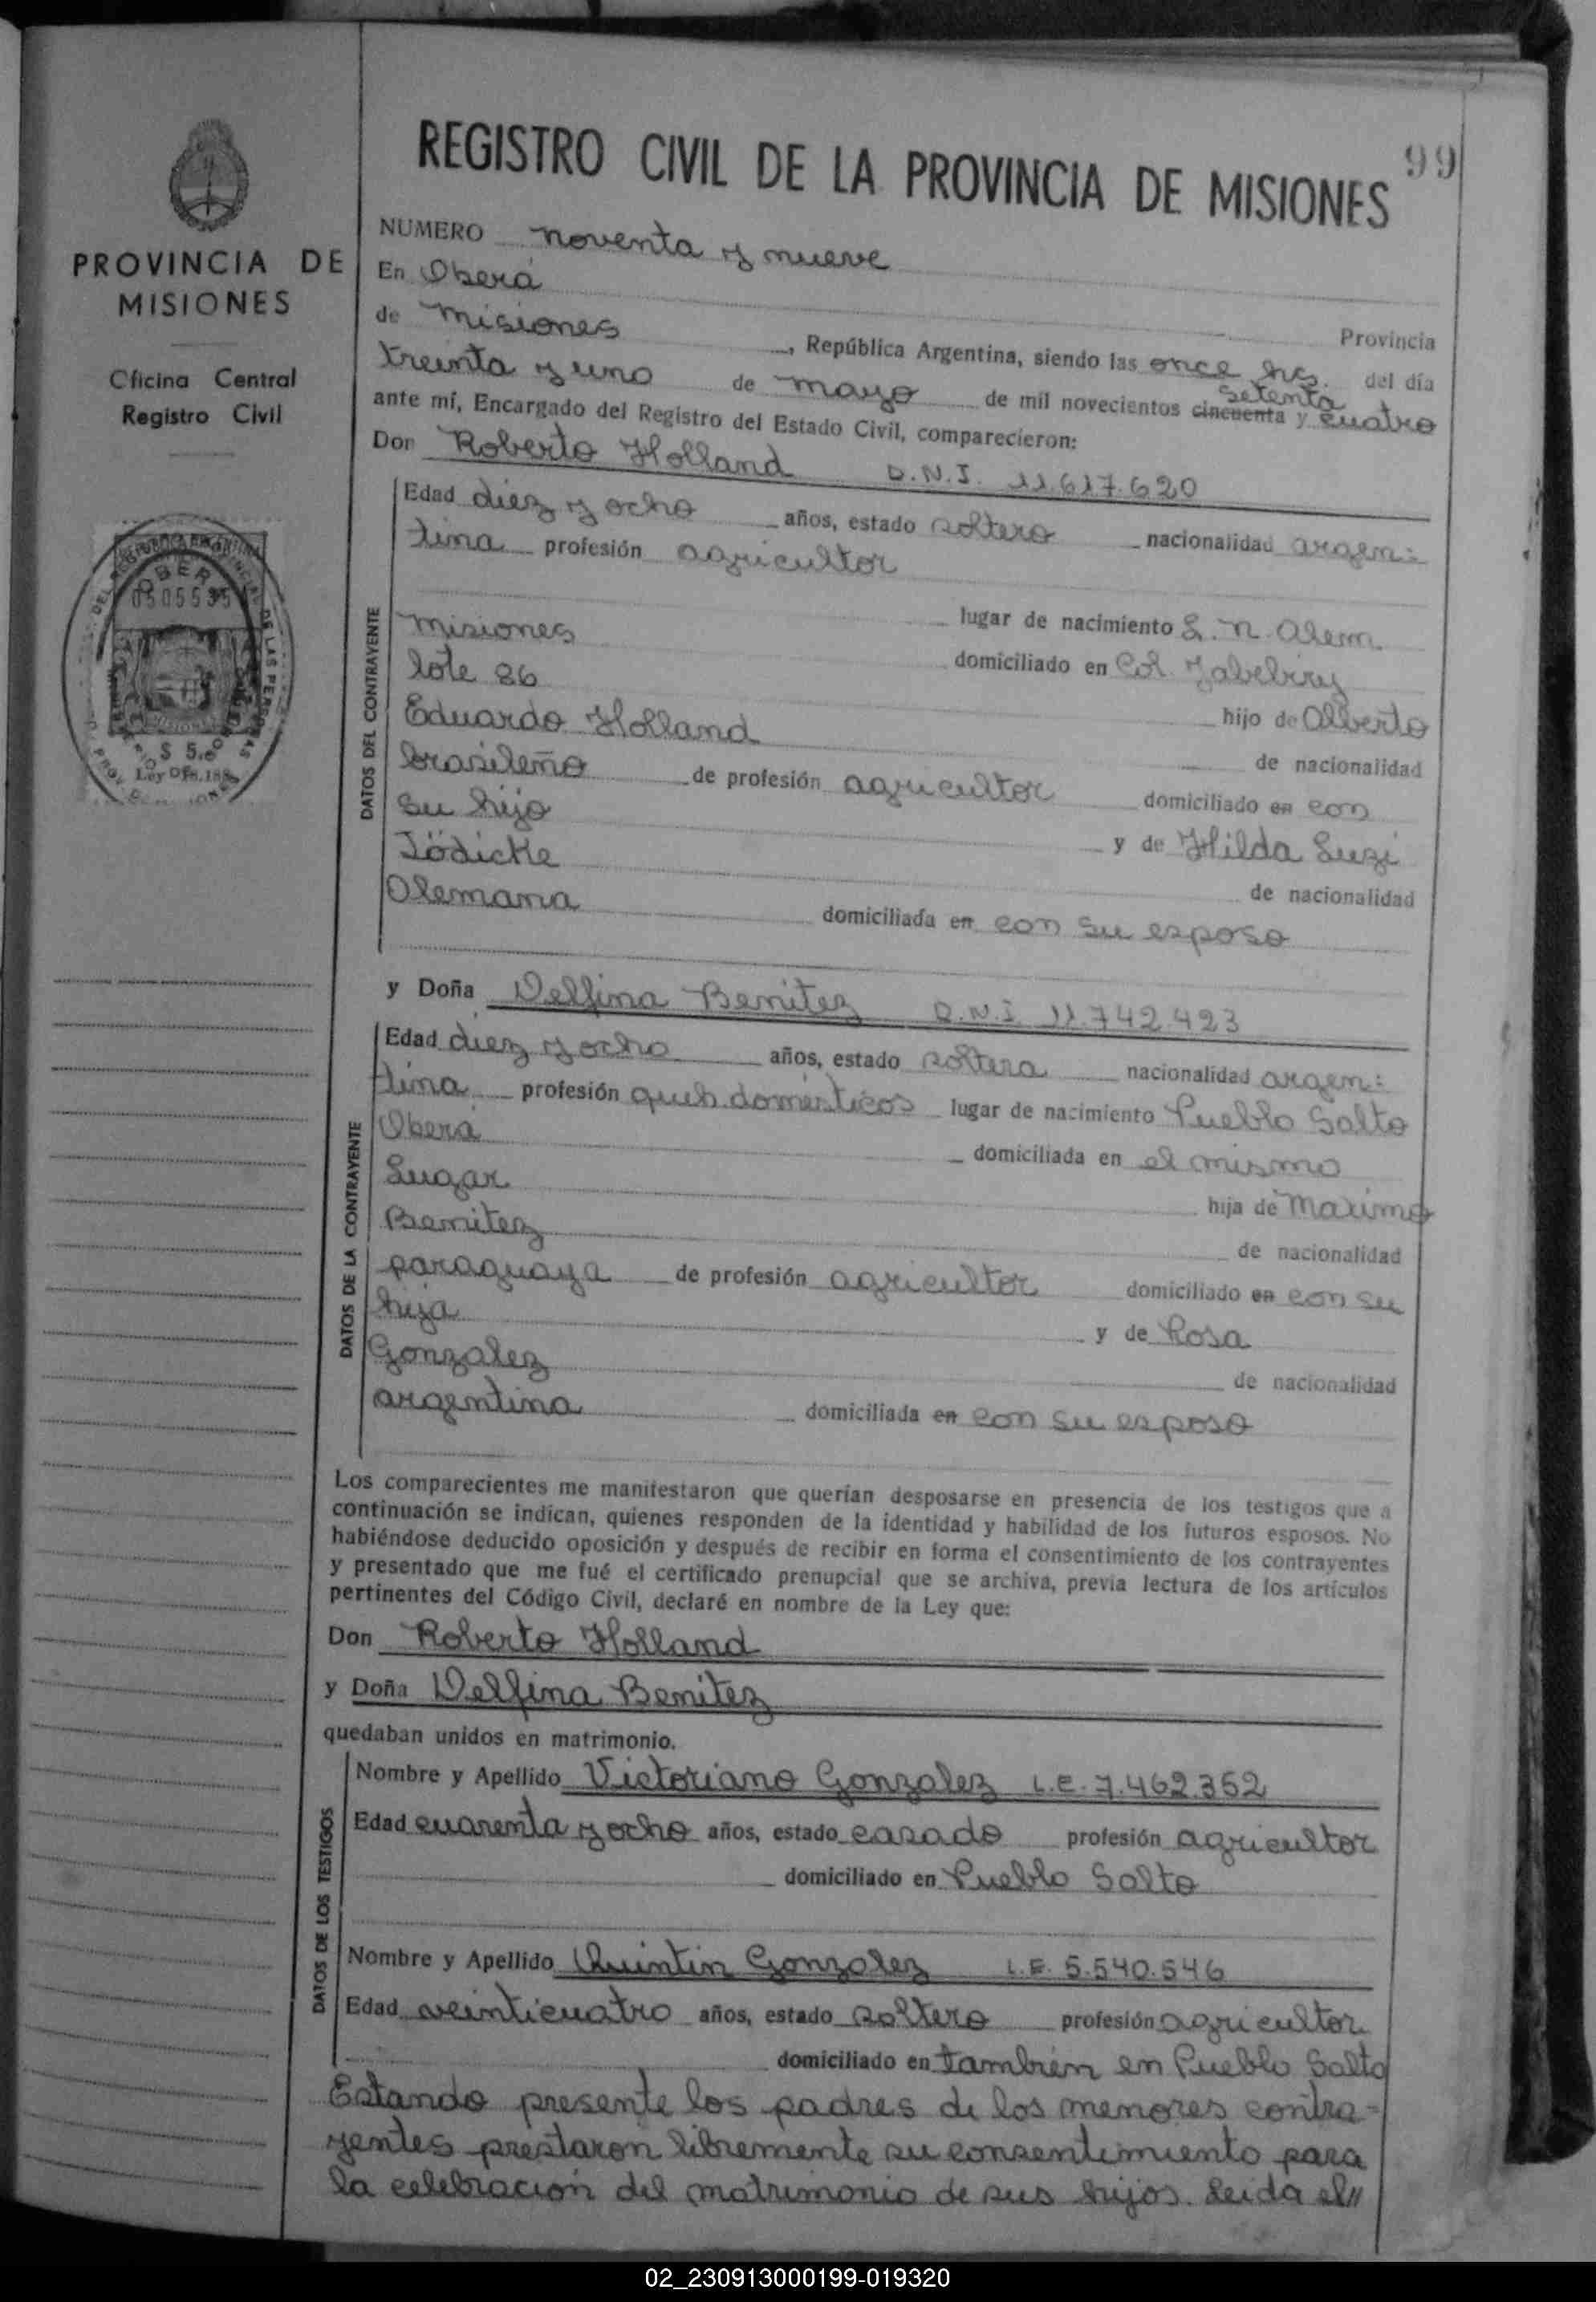 REGISTRO CIVIL DE LA PROVINCIA DE MISIONES 99
PROVINCIA DE
MISIONES
Oficina Central
Registro Civil
OBERA
0505535
$ 5.
NUMERO noventa y nueve
En Oberá Provincia
de misiones, República Argentina, siendo las once hs. del día
treinta y uno de mayo de mil novecientos cincuenta setenta y cuatro
ante mí, Encargado del Registro del Estado Civil, comparecieron:
Don Roberto Holland D.N.I. 11.617.620
DATOS DEL CONTRAYENTE
Edad diez y ocho años, estado soltero nacionalidad argen=
tina profesión agricultor
lugar de nacimiento L. n. alem
misiones domiciliado en Col. Yabebiry
lote 86 hijo de Alberto
Eduardo Holland de nacionalidad
brasileño de profesión agricultor domiciliado en con
su hijo y de Hilda Suzi
Jödicke de nacionalidad
Alemana domiciliada en con su esposo
y Doña Delfina Benitez D.N.I. 11.742.423
DATOS DE LA CONTRAYENTE
Edad diez y ocho años, estado soltera nacionalidad argen=
tina profesión queh. domésticos lugar de nacimiento Pueblo Salto
Oberá domiciliada en el mismo
Lugar hija de Maximo
Benitez de nacionalidad
paraguaya de profesión agricultor domiciliado en con su
hija y de Rosa
Gonzalez de nacionalidad
argentina domiciliada en con su esposo
Los comparecientes me manifestaron que querían desposarse en presencia de los testigos que a
continuación se indican, quienes responden de la identidad y habilidad de los futuros esposos. No
habiéndose deducido oposición y después de recibir en forma el consentimiento de los contrayentes
y presentado que me fué el certificado prenupcial que se archiva, previa lectura de los artículos
pertinentes del Código Civil, declaré en nombre de la Ley que:
Don Roberto Holland
y Doña Delfina Benitez
quedaban unidos en matrimonio.
DATOS DE LOS TESTIGOS
Nombre y Apellido Victoriano Gonzalez L.E. 7.462.352
Edad cuarenta y ocho años, estado casado profesión agricultor
domiciliado en Pueblo Salto
Nombre y Apellido Quintin Gonzalez L.E. 5.540.546
Edad veinticuatro años, estado soltero profesión agricultor
domiciliado en también en Pueblo Salto
Estando presente los padres de los menores contra=
yentes prestaron libremente su consentimiento para
la celebración del matrimonio de sus hijos. Leida el//
02_230913000199-019320